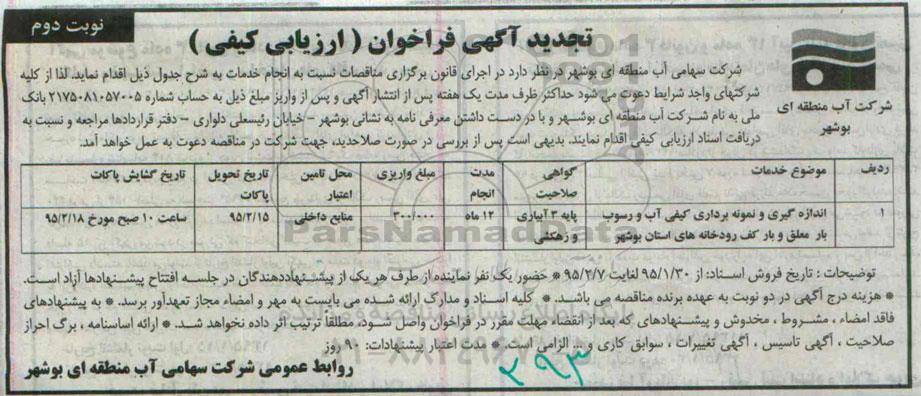 نوبت دوم
تجدید آگهی فراخوان ( ارزیابی کیفی )
شرکت آب منطقه ای
بوشهر
شرکت سهامی آب منطقه ای بوشهر در نظر دارد در اجرای قانون برگزاری مناقصات نسبت به انجام خدمات به شرح جدول ذیل اقدام نماید. لذا از کلیه
شرکتهای واجد شرایط دعوت می شود حداکثر ظرف مدت یک هفته پس از انتشار آگهی و پس از واریز مبلغ ذیل به حساب شماره ۲۱۷۵۰۸۱۰۵۷۰۰۵ بانک
ملی به نام شرکت آب منطقه ای بوشهر و با در دست داشتن معرفی نامه به نشانی بوشهر – خیابان رئیسعلی دلواری – دفتر قراردادها مراجعه و نسبت به
دریافت اسناد ارزیابی کیفی اقدام نمایند. بدیهی است پس از بررسی در صورت صلاحدید، جهت شرکت در مناقصه دعوت به عمل خواهد آمد.
ردیف موضوع خدمات گواهی صلاحیت مدت انجام مبلغ واریزی محل تامین اعتبار تاریخ تحویل پاکات تاریخ گشایش پاکات
۱ اندازه گیری و نمونه برداری کیفی آب و رسوب بار معلق و بار کف رودخانه های استان بوشهر پایه ۳ آبیاری و زهکشی ۱۲ ماه ۳۰۰/۰۰۰ منابع داخلی ۹۵/۲/۱۵ ساعت ۱۰ صبح مورخ ۹۵/۲/۱۸
ParsNamadData
توضیحات : تاریخ فروش اسناد: از ۹۵/۱/۳۰ لغایت ۹۵/۲/۷ * حضور یک نفر نماینده از طرف هر یک از پیشنهاددهندگان در جلسه افتتاح پیشنهادها آزاد است.
* هزینه درج آگهی در دو نوبت به عهده برنده مناقصه می باشد. * کلیه اسناد و مدارک ارائه شده می بایست به مهر و امضاء مجاز تعهدآور برسد. * به پیشنهادهای
فاقد امضاء ، مشروط ، مخدوش و پیشنهادهای که بعد از انقضاء مهلت مقرر در فراخوان واصل شود، مطلقا ترتیب اثر داده نخواهد شد. * ارائه اساسنامه ، برگ احراز
صلاحیت ، آگهی تاسیس ، آگهی تغییرات ، سوابق کاری و ... الزامی است. * مدت اعتبار پیشنهادات: ۹۰ روز
روابط عمومی شرکت سهامی آب منطقه ای بوشهر
۲۹۳